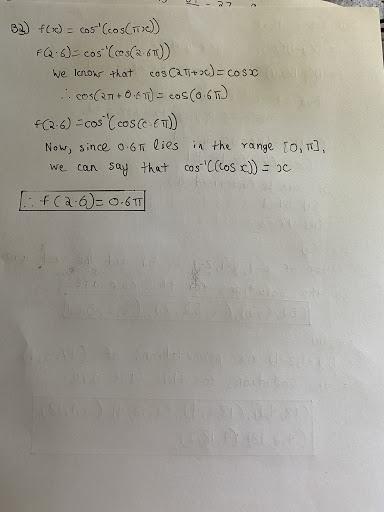 32) f(x) = cos⁻¹(cos(πx))
f(2.6) = cos⁻¹(cos(2.6π))
we know that cos(2π+x) = cosx
∴ cos(2π + 0.6π) = cos(0.6π)
f(2.6) = cos⁻¹(cos(0.6π))
Now, since 0.6π lies in the range [0,π],
we can say that cos⁻¹((cos x)) = x
∴ f(2.6) = 0.6π